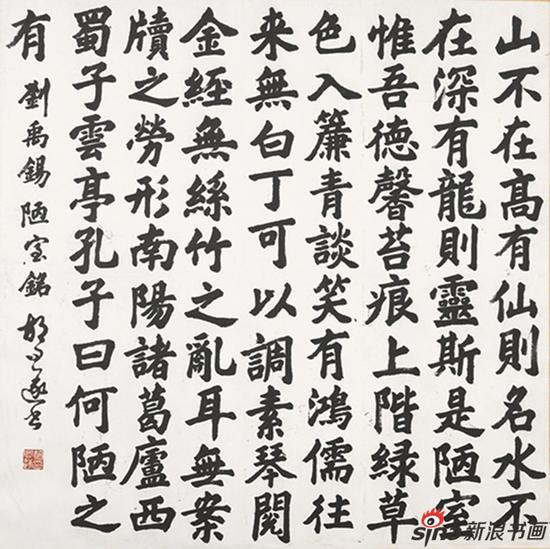 山不在高有仙則名水不
在深有龍則靈斯是陋室
惟吾德馨苔痕上階緑草
色入簾青談笑有鴻儒往
来無白丁可以調素琴閲
金經無絲竹之亂耳無案
牘之勞形南陽諸葛廬西
蜀子雲亭孔子曰何陋之
有 劉禹錫陋室銘 書
sina 新浪书画